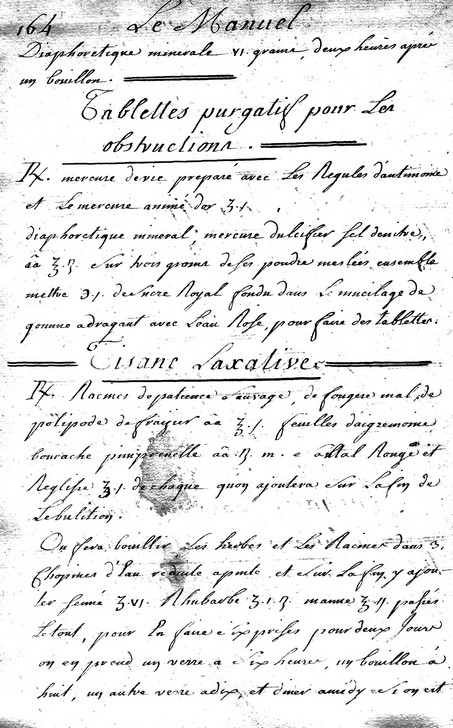 164 Le Manuel
Diaphoretique minerale VI. grains, deux heures aprés
un bouillon.
Tablettes purgatif pour Les
obstructions.
℞. mercure devie preparé avec Les Regules d'antimoine
et Le mercure animé dor ʒ.1.
diaphoretique mineral, mercure dulcifier sel denitre,
āā ʒ.ß. sur trois grains deses poudre meslées ensemble
mettre ʒ1. desucre Royal fondu dans Le mucilage de
gomme adragant avec Leau Rose, pour faire des tablettes.
Tisane Laxative
℞. Racines de patience sauvage, de fougere mal, de
polipode de āā ʒ.1. feuilles daigremoine
bourache pimprenelle āā ß. m. e Rouge et
Reglisse ʒ.1. de chaque quon ajoutera sur Lafin de
Lebulition.
On fera bouillir Les herbes et Les Racines dans 3.
Chopines d'Eau reduite apinte et sur Lafin y ajou
ter senné ʒ.VI. Rhubarbe ʒ.1.ß. manne ʒ.II. passés
Letout, pour En faire six prises pour deux Jours
on en prend un verre a six heures, un bouillon à
huit, un autre verre adix, et diner amidy si on est